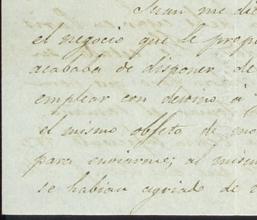 Juan me di
el negocio que le prop
acababa de disponer de
emplear con destino a
el mismo objeto de
para enviarme; al mism
se habian agriado de